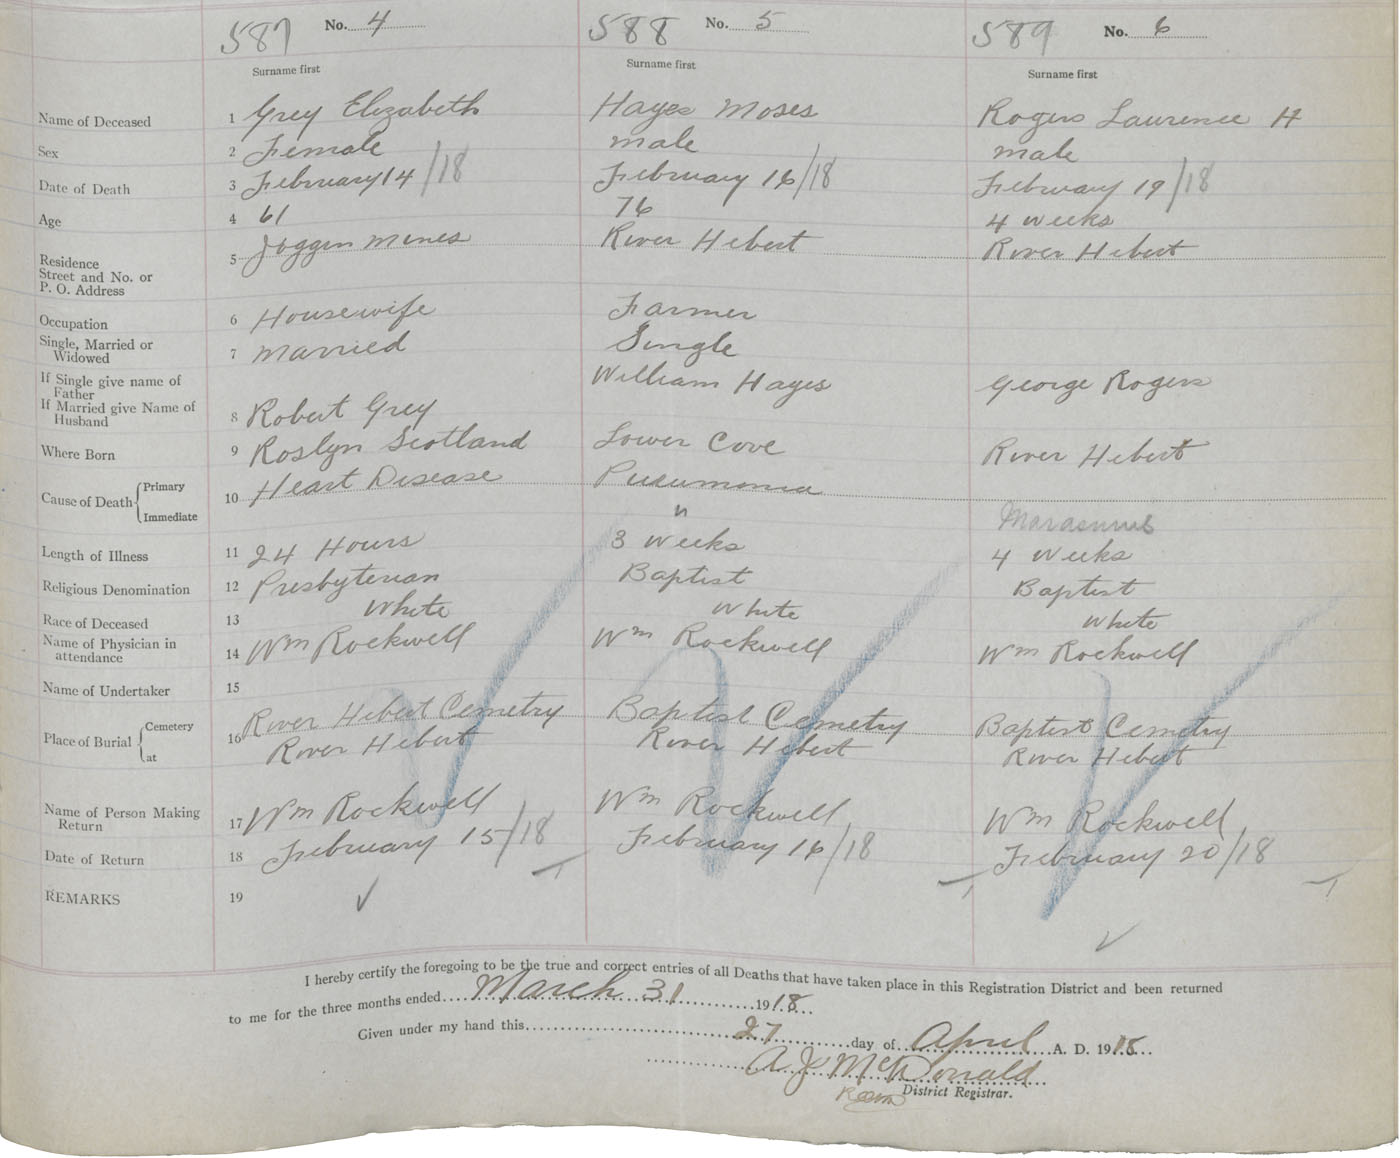 587 No. 4 588 No. 5 589 No. 6
Surname first Surname first Surname first
Name of Deceased 1 Grey Elizabeth Hayes Moses Rogers Laurence H
Sex 2 Female male male
Date of Death 3 February 14/18 February 16/18 February 19/18
Age 4 61 76 4 weeks
Residence
Street and No. or
P. O. Address 5 Joggin mines River Hebert River Hebert
Occupation 6 Housewife Farmer
Single, Married or
Widowed 7 married Single
If Single give name of
Father William Hayes George Rogers
If Married give Name of
Husband 8 Robert Grey
Where Born 9 Roslyn Scotland Lower Cove River Hebert
Cause of Death Primary 10 Heart Disease Pneumonia
Immediate " Marasmus
Length of Illness 11 24 Hours 3 weeks 4 weeks
Religious Denomination 12 Presbyterian Baptist Baptist
Race of Deceased 13 White White White
Name of Physician in
attendance 14 Wm Rockwell Wm Rockwell Wm Rockwell
Name of Undertaker 15
Place of Burial Cemetery 16 River Hebert Cemetry Baptist Cemetry Baptist Cemetry
at River Hebert River Hebert River Hebert
Name of Person Making
Return 17 Wm Rockwell Wm Rockwell Wm Rockwell
Date of Return 18 February 15/18 February 16/18 February 20/18
REMARKS 19
I hereby certify the foregoing to be the true and correct entries of all Deaths that have taken place in this Registration District and been returned
to me for the three months ended March 31 1918
Given under my hand this 27 day of April A. D. 1918
A J McDonald
District Registrar.